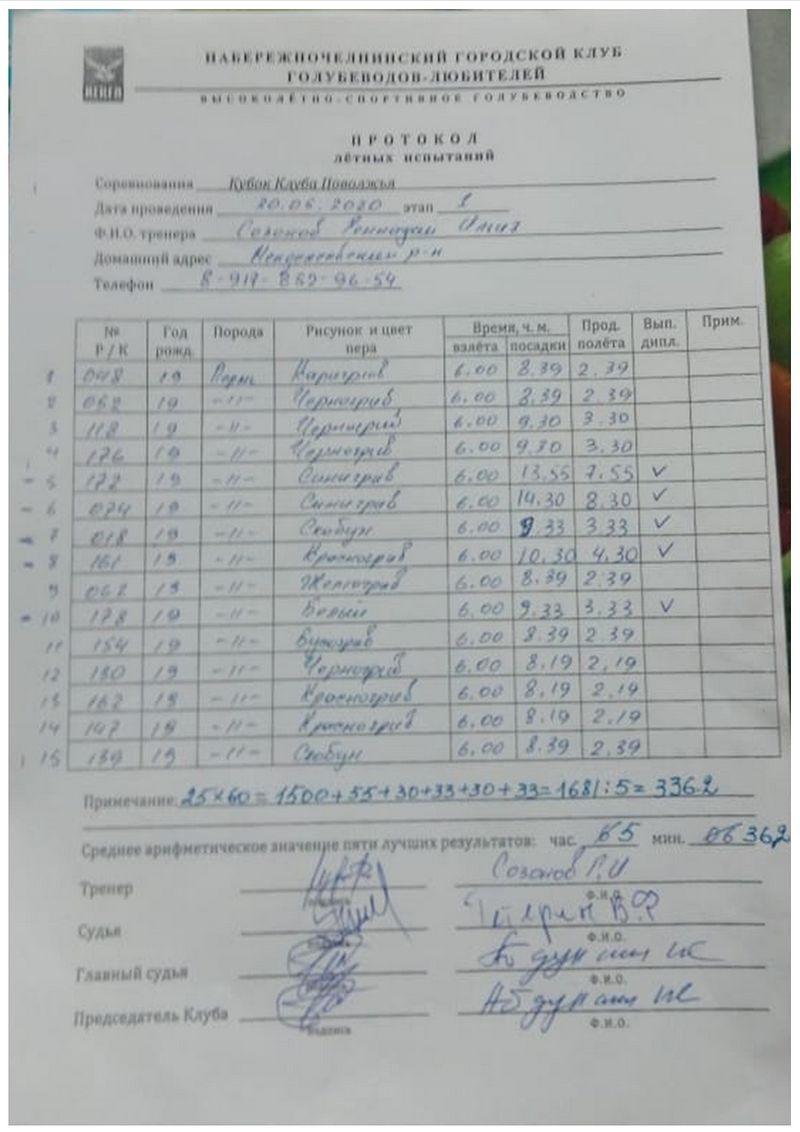 НАБЕРЕЖНОЧЕЛНИНСКИЙ ГОРОДСКОЙ КЛУБ
ГОЛУБЕВОДОВ-ЛЮБИТЕЛЕЙ
ВЫСОКОЛЁТНО-СПОРТИВНОЕ ГОЛУБЕВОДСТВО
ПРОТОКОЛ
лётных испытаний
Соревнования Кубок Клуба Поволжья
Дата проведения 20.06.2020 этап
Ф.И.О. тренера Созонов Геннадий
Домашний адрес р-н
Телефон 8-917-862-96-54
№ Р / К Год рожд. Порода Рисунок и цвет пера Время, ч. м. взлёта посадки Прод. полёта Вып. дипл. Прим.
1 048 19 Пермь 6.00 8.39 2.39
2 062 19 -"- Черногрив 6.00 8.39 2.39
3 118 19 -"- Черногрив 6.00 9.30 3.30
4 176 19 -"- Черногрив 6.00 9.30 3.30
5 172 19 -"- Синегрив 6.00 13.55 7.55 ✓
6 074 19 -"- Синегрив 6.00 14.30 8.30 ✓
7 018 19 -"- Скобун 6.00 9.33 3.33 ✓
8 161 19 -"- Красногрив 6.00 10.30 4.30 ✓
9 062 19 -"- Желтогрив 6.00 8.39 2.39
10 178 19 -"- Белый 6.00 9.33 3.33 ✓
11 154 19 -"- 6.00 8.39 2.39
12 130 19 -"- Черногрив 6.00 8.19 2.19
13 162 19 -"- Красногрив 6.00 8.19 2.19
14 147 19 -"- Красногрив 6.00 8.19 2.19
15 139 19 -"- Скобун 6.00 8.39 2.39
Примечание: 25×60=1500+55+30+33+30+33=1681:5=336.2
Среднее арифметическое значение пяти лучших результатов: час. мин. 36,2
Тренер подпись Созонов Г.И Ф.И.О.
Судья подпись В.Р Ф.И.О.
Главный судья подпись Ф.И.О.
Председатель Клуба подпись Ф.И.О.